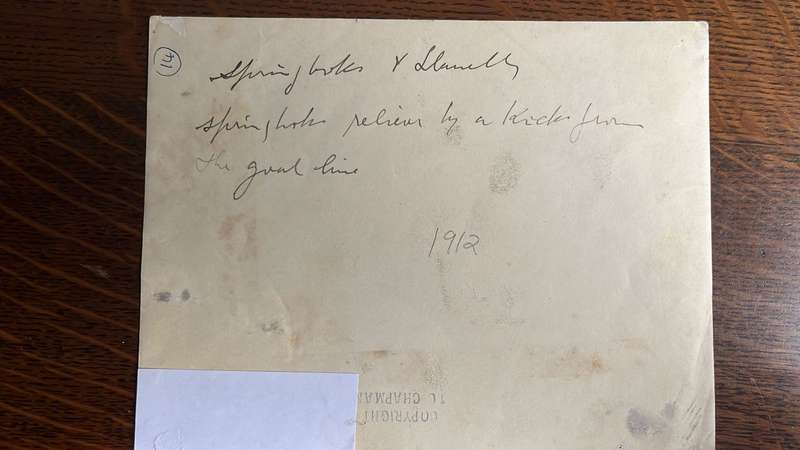 14
Springboks v Llanelly
Springboks relieve by a Kick from
the goal line
1912
COPYRIGHT
CHAPMAN